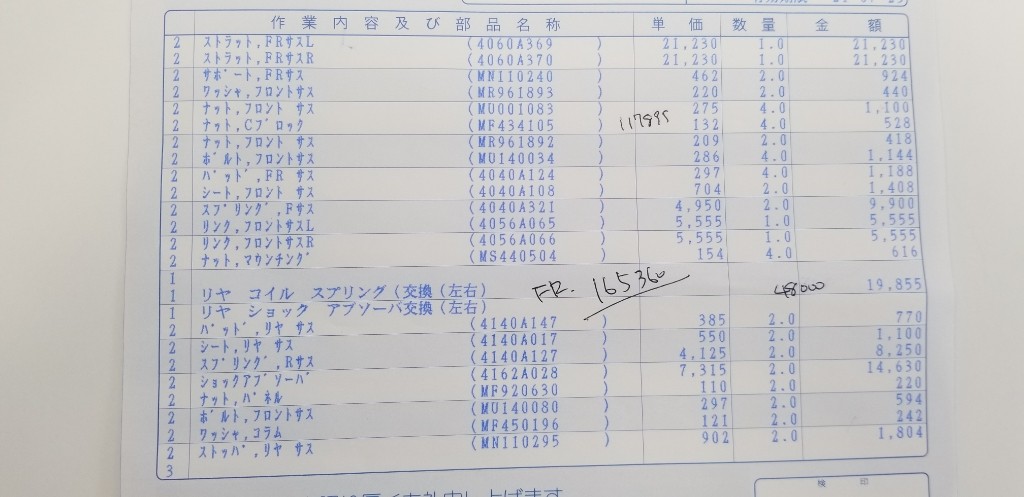 作業内容及び部品名称 単価 数量 金額
2 ストラット,FRサスL (4060A369) 21,230 1.0 21,230
2 ストラット,FRサスR (4060A370) 21,230 1.0 21,230
2 サポート,FRサス (MN110240) 462 2.0 924
2 ワッシャ,フロントサス (MR961893) 220 2.0 440
2 ナット,フロント サス (MU001083) 275 4.0 1,100
2 ナット,Cブロック (MF434105) 117895 132 4.0 528
2 ナット,フロント サス (MR961892) 209 2.0 418
2 ボルト,フロントサス (MU140034) 286 4.0 1,144
2 パッド,FR サス (4040A124) 297 4.0 1,188
2 シート,フロント サス (4040A108) 704 2.0 1,408
2 スプリング,Fサス (4040A321) 4,950 2.0 9,900
2 リンク,フロントサスL (4056A065) 5,555 1.0 5,555
2 リンク,フロントサスR (4056A066) 5,555 1.0 5,555
2 ナット,マウンチング (MS440504) 154 4.0 616
1
1 リヤ コイル スプリング(交換(左右) FR. 165360 48000 19,855
1 リヤ ショック アブソーバ交換(左右)
2 パッド,リヤ サス (4140A147) 385 2.0 770
2 シート,リヤ サス (4140A017) 550 2.0 1,100
2 スプリング,Rサス (4140A127) 4,125 2.0 8,250
2 ショックアブソーバ (4162A028) 7,315 2.0 14,630
2 ナット,パネル (MF920630) 110 2.0 220
2 ボルト,フロントサス (MU140080) 297 2.0 594
2 ワッシャ,コラム (MF450196) 121 2.0 242
2 ストッパ,リヤ サス (MN110295) 902 2.0 1,804
3
検印